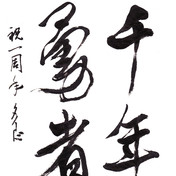 千年
勇者
祝一周年